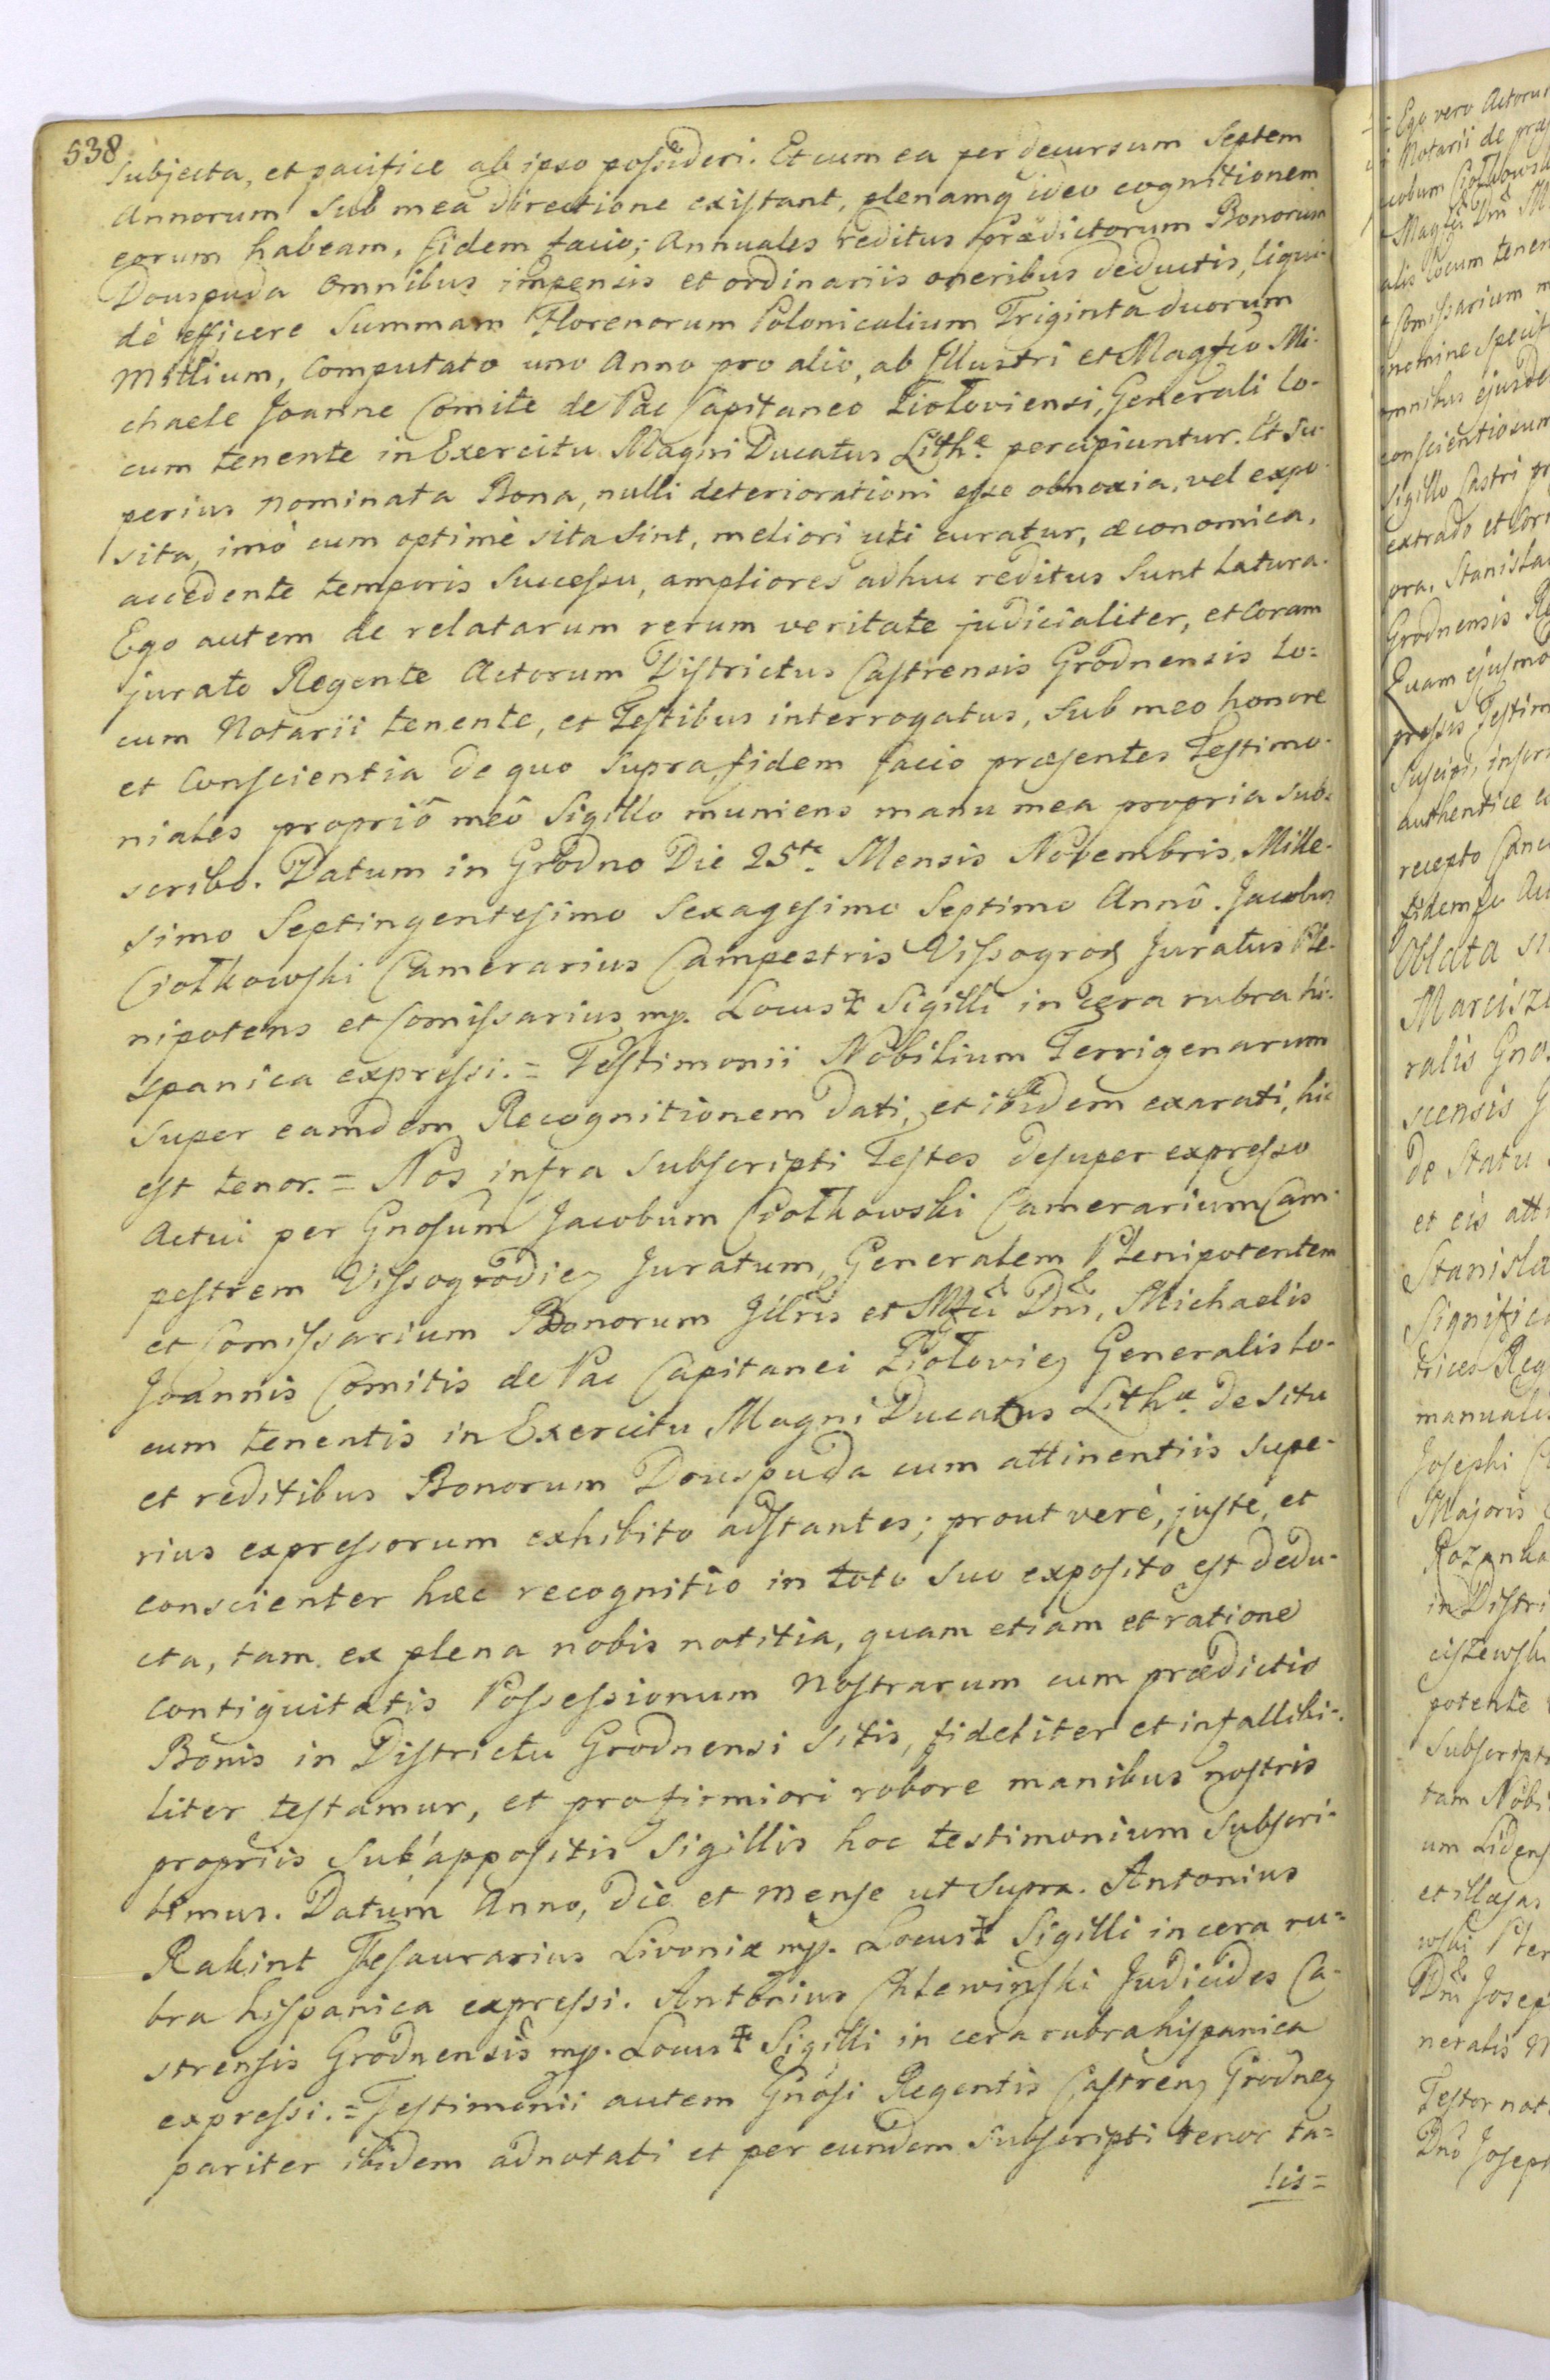 538
Subjecta, et pacifice ab ipso possideri. Et cum ea per decursum Septem
Annorum Sub mea directione existant, plenamq ideo cognitionem
eorum habeam, fidem facio; Annuales reditus Prædictorum Bonorum
Douspuda omnibus impensis et ordinariis oneribus deductis, liqui-
dè efficere Summam Florenorum Polonicalium Triginta duorum
Millium, Computato uno Anno pro alio, ab Illustri et Magfco Mi-
chaele Joanne Comite de Pac Capitaneo Ziołoviensi, Generali lo-
cum tenente in Exercitu Magni Ducatus Lithæ percipiuntur. Et Su-
perius nominata Bona, nulli deteriorationi esse obnoxia, vel expo-
sita, imò cum optimè sita sint, meliori uti curatur, œconomica,
accedente temporis Successu, ampliores adhuc reditus Sunt latura.
Ego autem de relatarum rerum veritate judicialiter, et Coram
jurato Regente Actorum Districtus Castrensis Grodnensis lo=
cum Notarii tenente, et Testibus interrogatus, Sub meo honore
et Conscientia de quo Supra, fidem facio præsentes Testimo-
niales propriô meô Sigillo muniens manu mea propria sub-
scribo. Datum in Grodno Die 25ta Mensis Novembris, Mille-
simo Septingentesimo Sexagesimo Septimo Annô. Jacobus
Ciołkowski Camerarius Campestris Vissogrod Juratus Ple-
nipotens et Comissarius mp. Locus Sigilli in cera rubra hi-
spanica expressi. = Testimonii Nobilium Terrigenarum
super eamdem Recognitionem dati, et ibidem exarati, hic
est tenor. = Nos infra Subscripti Testes desuper expresso
Actui per Gnosum Jacobum Ciołkowski Camerarium Cam-
pestrem Vissogrodien Juratum, Generalem Plenipotentem
et Comissarium Bonorum Illris et Mfci Dni, Michaelis
Joannis Comitis de Pac Capitanei Ziołovien Generalis lo-
cum tenentis in Exercitu Magni Ducatus Lithæ de Situ
et reditibus Bonorum Douspuda cum attinentiis supe-
rius expressorum exhibito adstantes; prout verè, justè, et
conscienter hæc recognitio in toto suo exposito est dedu-
cta, tam ex plena nobis notitia, quam etiam et ratione
contiguitatis Possessionum nostrarum cum prædictis
Bonis in Districtu Grodnensi sitis, fideliter et infallibi-
liter testamur, et pro firmiori robore manibus nostris
propriis Sub appositis Sigillis hoc testimonium Subscri-
bimus. Datum Anno, die et mense ut supra. Antonius
Rakint Thesaurarius Livoniæ mp. Locus Sigilli in cera ru=
bra hispanica expressi. Antonius Chlewinski Judicides Ca-
strensis Grodnensis mp. Locus Sigilli in cera rubra hispanica
expressi. = Testimonii autem Gnosi Regentis Castren Grodnen
pariter ibidem adnotati et per eundem subscripti tenor ta=
lis=
Ego vero Actorum
Notarii de
Magfci Dni M
locum tenen
nomine
omnibus ejusde
Sigillo Castri
extrado et
Grodnensis
Testim
authentice
recepto
Oblata
ralis
scensis
de Statu
manuales
Josephi
Majoris
in Distri
potente
Subscripti
tam Nobi
et illæsas
Dni Josep
neralis
Testor
Dno Joseph